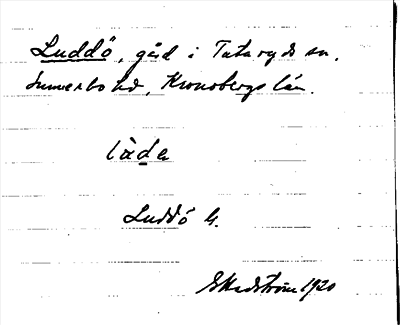 Luddö, gård i Tutaryds sn,
Sunnerbo hd, Kronobergs län.
lùdə
Luddö G.
E Hedström 1920